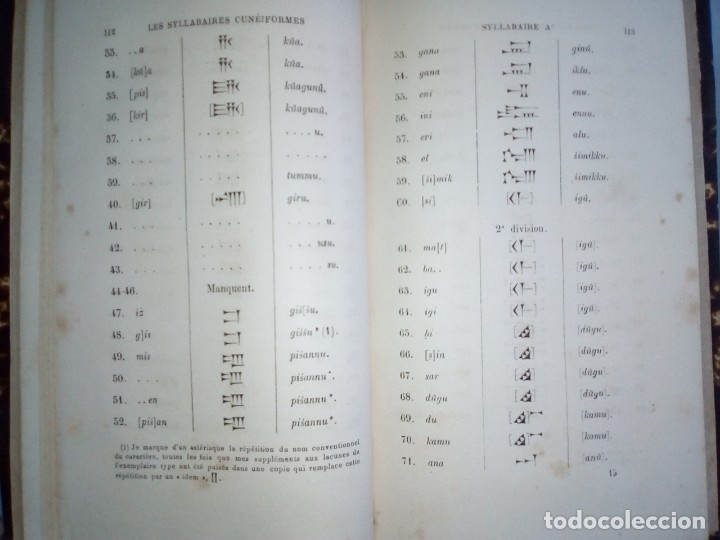 112 LES SYLLABAIRES CUNÉIFORMES
33. ..a kûa.
34. [kû]a kûa.
35. [pis] kûagunû.
36. [kir] kûagunû.
37. . . . . . . . . u.
38. . . . . . . . .
39. . . . . . . . . tummu.
40. [gir] giru.
41. . . . . . . . . u.
42. . . . . . . . . usu.
43. . . . . . . . . ru.
44-46. Manquent.
47. iz giš[šu.
48. g]is giššu * (1).
49. mis pišannu *.
50. . . . pišannu *.
51. . .en pišannu *.
52. [piš]an pišannu *.
(1) Je marque d'un astérisque la répétition du nom conventionnel
du caractère, toutes les fois que mes suppléments aux lacunes de
l'exemplaire type ont été puisés dans une copie qui remplace cette
répétition par un « idem »,
SYLLABAIRE Aᶜ 113
53. gana ginû.
54. gana iklu.
55. eni enu.
56. ini ennu.
57. eri alu.
58. el šimikku.
59. [ši]mik šimikku.
60. [si] igû.
2ᵉ division.
61. ma[t] [igû].
62. ba. . [igû].
63. igu [igû].
64. igi [igû].
65. ḫi [dûgu].
66. [s]in [dûgu].
67. sar [dûgu].
68. dûgu [dûgu].
69. du [kamu].
70. kamu [kamu].
71. ana [anû].
15
todocoleccion
todocoleccion.net